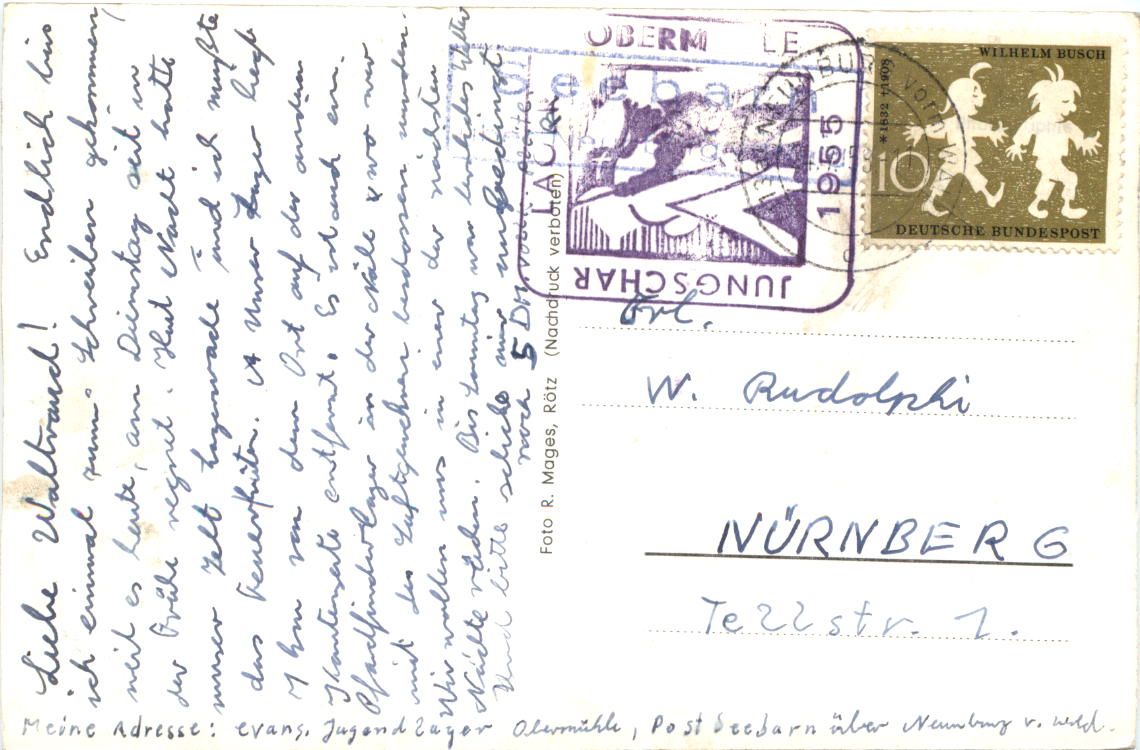 Liebe Waltraud! Endlich bin
ich einmal zum Schreiben gekommen,
weil es heute, am Dienstag seit in
der Frühe regnet. Heut Nacht hatte
unser Zelt Lagerwache und ich mußte
das Feuer hüten. Unser Lager liegt
1 km von dem Ort auf der andern
Kartenseite entfernt. Es ist auch ein
Pfadfinderlager in der Nähe, wo wir
mit des Luftgewehren beschossen wurden.
Wir wollen uns in einer der nächsten
Nächte rächen. Bis Sonntag war herrliches Wetter
Und bitte schicke mir unbedingt
noch 5
Meine Adresse: evang. Jugendlager Obermühle, Post Seebarn über Neunburg v. Wald.
Foto R. Mages, Rötz (Nachdruck verboten)
OBERM LE
JUNGSCHAR
1955
Seebarn
vorm Wald
WILHELM BUSCH
*1832 †1908
10
DEUTSCHE BUNDESPOST
Frl.
W. Rudolphi
NÜRNBERG
Tellstr. 1.